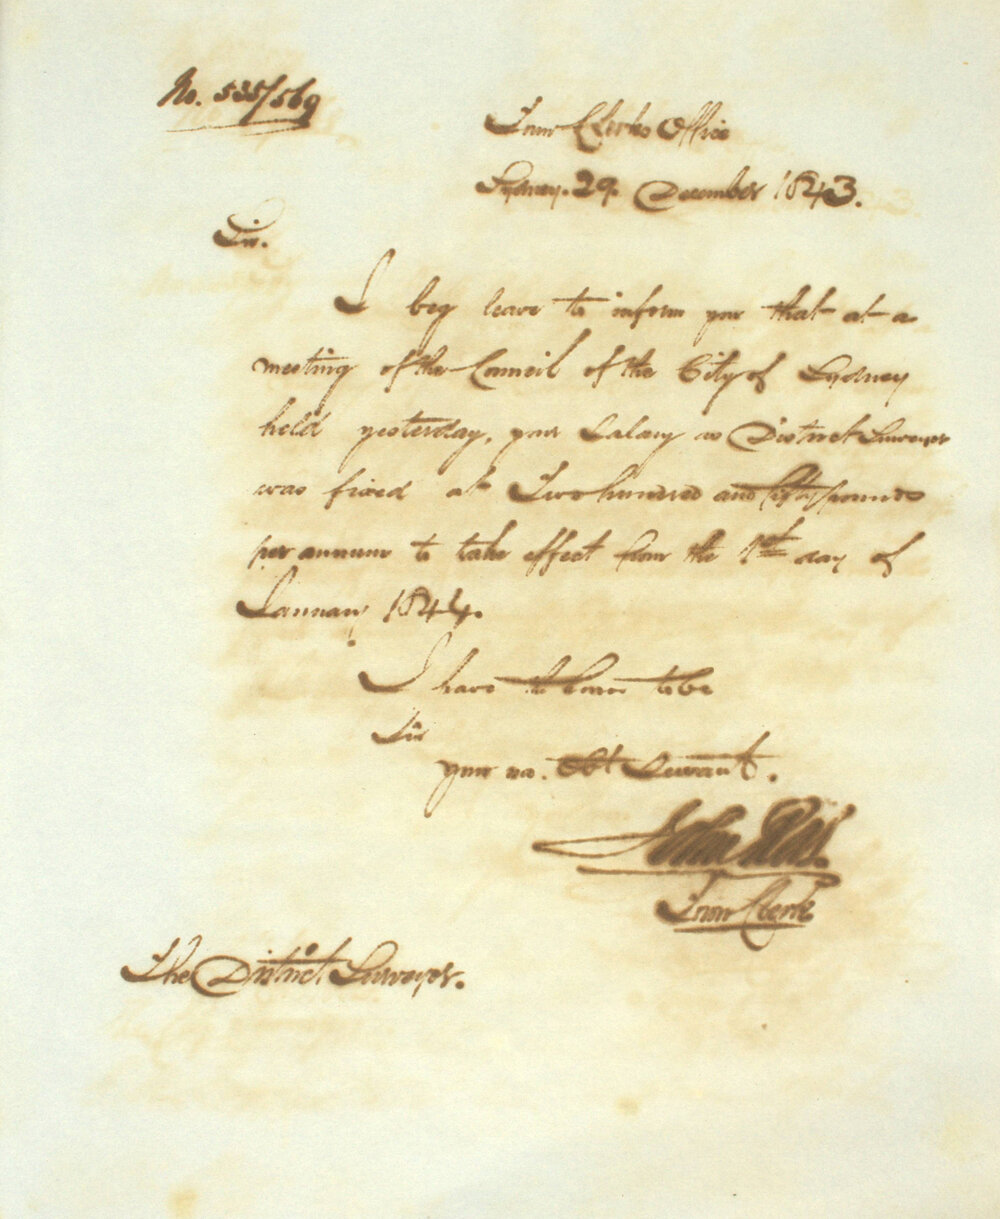 No. 535/569
Town Clerks Office
Sydney. 29. December 1843.
Sir.
I beg leave to inform you that at a
meeting of the Council of the City of Sydney
held yesterday, your Salary as District Surveyor
was fixed at Two hundred and fifty pounds
per annum to take effect from the 1st day of
January 1844.
I have the honor to be
Sir
your mo. Obt Servant.
John Rae.
Town Clerk
The District Surveyor.